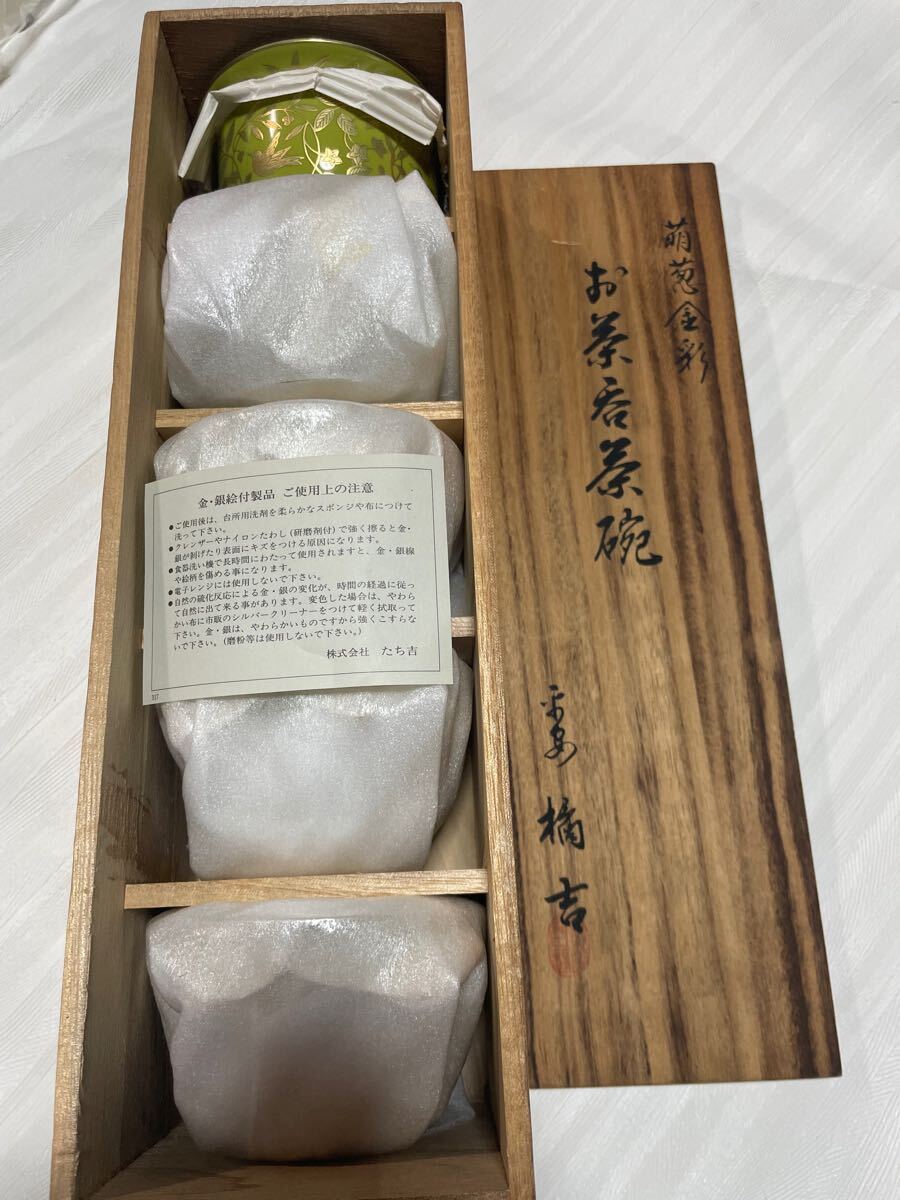 萌葱金彩
お茶呑茶碗
平安
橘吉
金・銀絵付製品 ご使用上の注意
●ご使用後は、台所用洗剤を柔らかなスポンジや布につけて
洗って下さい。
●クレンザーやナイロンたわし(研磨剤付)で強く擦ると金・
銀が剝げたり表面にキズをつける原因になります。
●食器洗い機で長時間にわたって使用されますと、金・銀線
や絵柄を傷める事になります。
●電子レンジには使用しないで下さい。
●自然の硫化反応による金・銀の変化が、時間の経過に従っ
て自然に出て来る事があります。変色した場合は、やわら
かい布に市販のシルバークリーナーをつけて軽く拭取って
下さい。金・銀は、やわらかいものですから強くこすらな
いで下さい。(磨粉等は使用しないで下さい。)
株式会社 たち吉